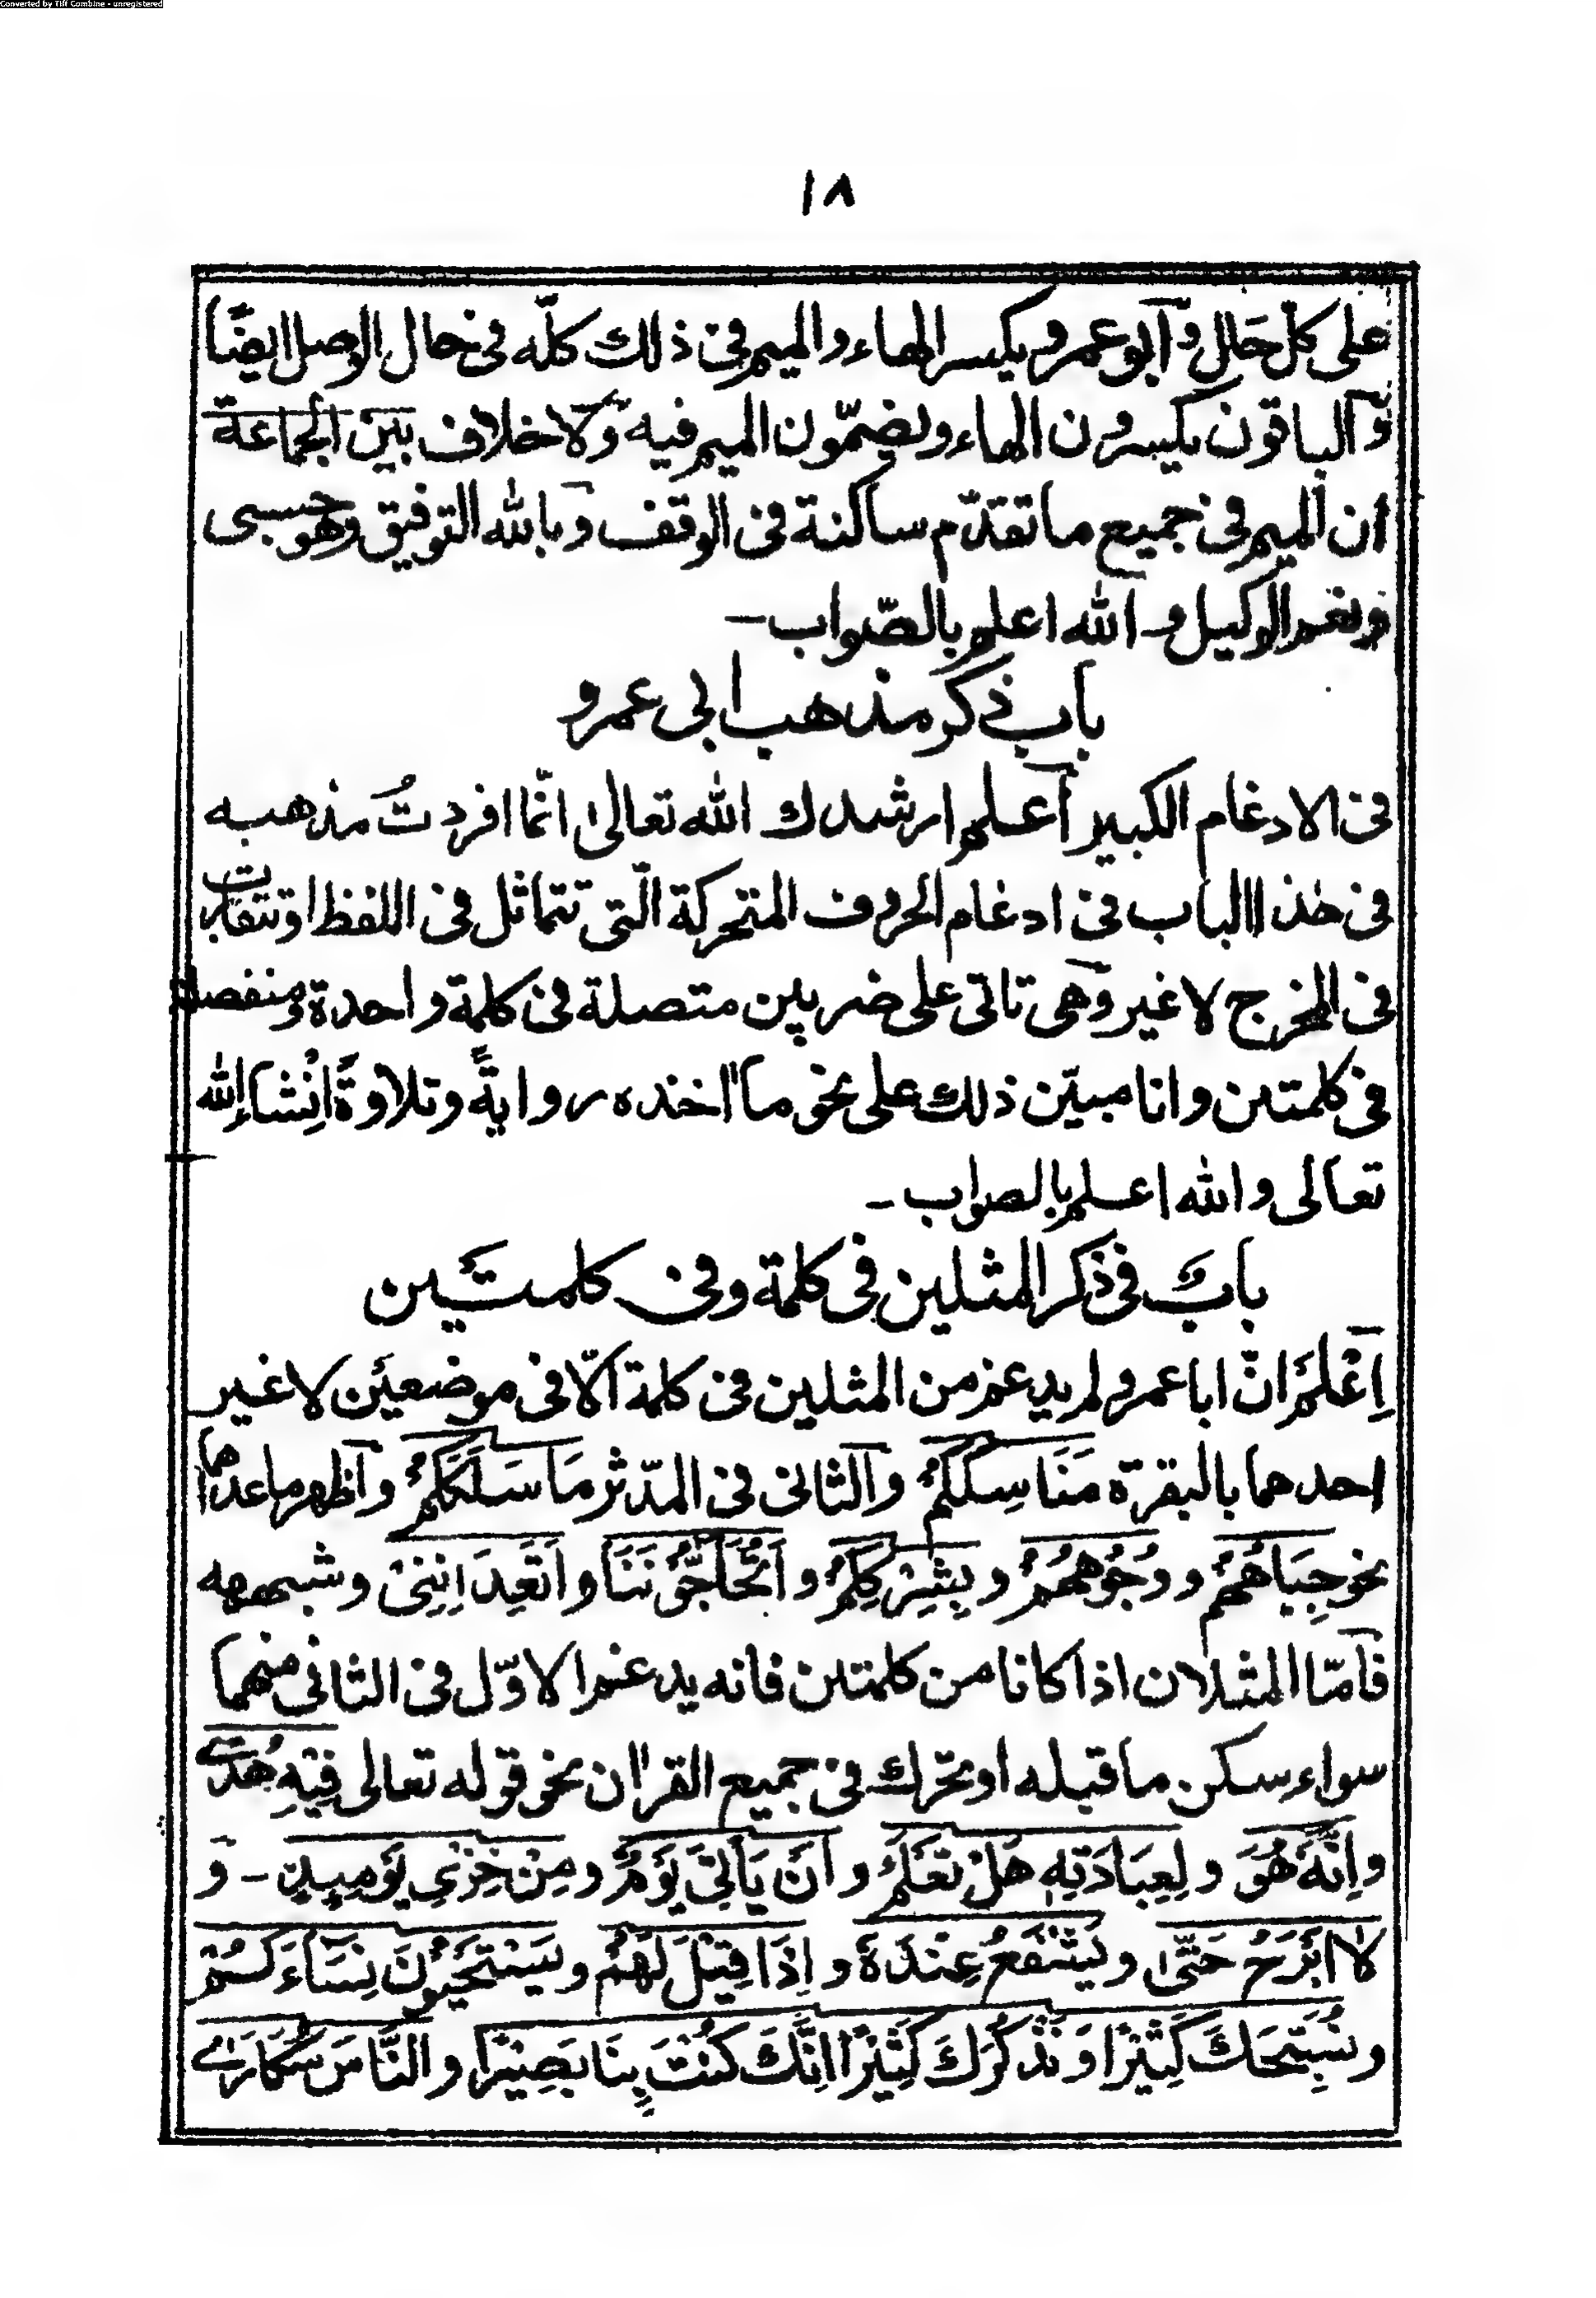 Converted by Tiff Combine - unregistered
١٨
على كلّ حَال وَّابو عمرو يكسر الهاء والميم فى ذلك كلّه فى حال الوصل ايضًا
وَّالباقون يكسرون الهاء ويضمّون الميم فيه وَلا خلاف بَيْن الجماعة
ان الميم فى جميع ما تقدّم ساكنة فى الوقف وَبالله التوفيق وهو حسبى
ونعم الوكيل و الله اعلم بالصّواب-
باب ذكر مذهب ابى عمرو
فى الادغام الكبير اَعلم ارشدك الله تعالىٰ انّما افردتُ مَذهبه
فى هٰذا الباب فى ادغام الحروف المتحركة الّتى تتماثل فى اللفظ او تتقارب
فى المخرج لا غير وَهى تاتى على ضربين متصلة فى كلمة واحدة ومنفصلة
فى كلمتين وانا مبيّن ذلك على نحو ما اخذه روايةً وتلاوةً اِنْشاءالله
تعالى والله اعلم بالصواب-
بابٌ فى ذكر المثلين فى كلمة وفى كلمتَين
اِعْلَمْ انّ ابا عمرو لم يدغم من المثلين فى كلمة الّا فى موضعيَن لا غير
احدهما بالبقرة مَنَاسِكَكُمْ والثانى فى المدّثر مَا سَلَكَكُمْ واَظهر ما عداهما
نحو جِبَاهُهُمْ و وُجُوْهُهُمْ و بِشِرْكِكُمْ و اَتُحَاجُّوْنَنَا و اَتَعِدَانِنِىْ وشبهه
فاَمّا المثلان اذا كانا من كلمتين فانه يدغم الاوّل فى الثانى منهما
سواء سكن ما قبله او تحرّك فى جميع القراٰن نحو قوله تعالى فِيْهِ هُدًى
و اِنَّهٗ هُوَ و لِعِبَادَتِهٖ هَلْ تَعْلَمُ و اَنْ يَاْتِىَ يَوْمٌ و مِنْ خِزْىِ يَوْمِئِذٍ - وَ
لَا اَبْرَحُ حَتّٰى و يَشْفَعُ عِنْدَهٗ و اِذَا قِيْلَ لَهُمْ و يَسْتَحْيُوْنَ نِسَاءَكُمْ
و نُسَبِّحَكَ كَثِيْرًا وَ نَذْكُرَكَ كَثِيْرًا اِنَّكَ كُنْتَ بِنَا بَصِيْرًا و النَّاسَ سُكَارٰى